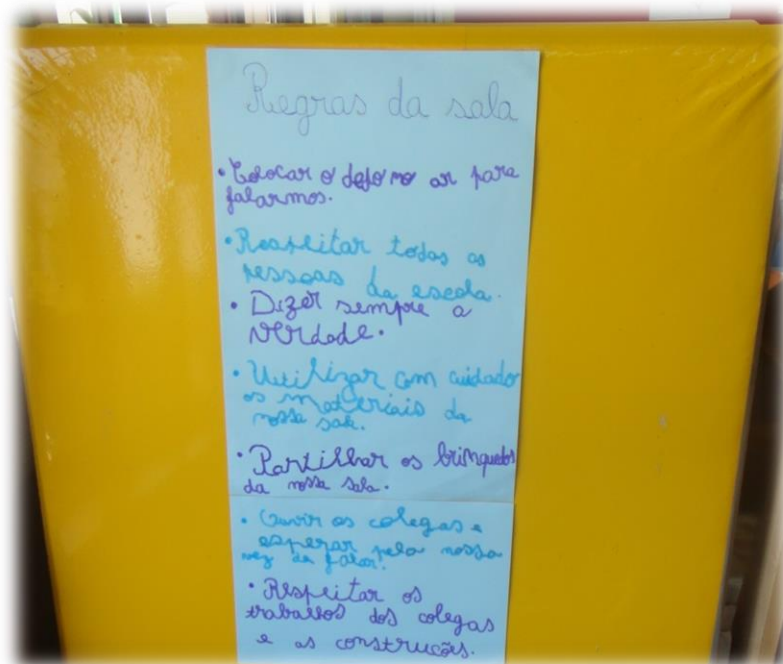 Regras da sala
• Colocar o dedo no ar para
falarmos.
• Respeitar todas as
pessoas da escola.
• Dizer sempre a
verdade.
• Utilizar com cuidado
os materiais da
nossa sala.
• Partilhar os brinquedos
da nossa sala.
• Ouvir os colegas e
esperar pela nossa
vez de falar.
• Respeitar os
trabalhos dos colegas
e as construções.